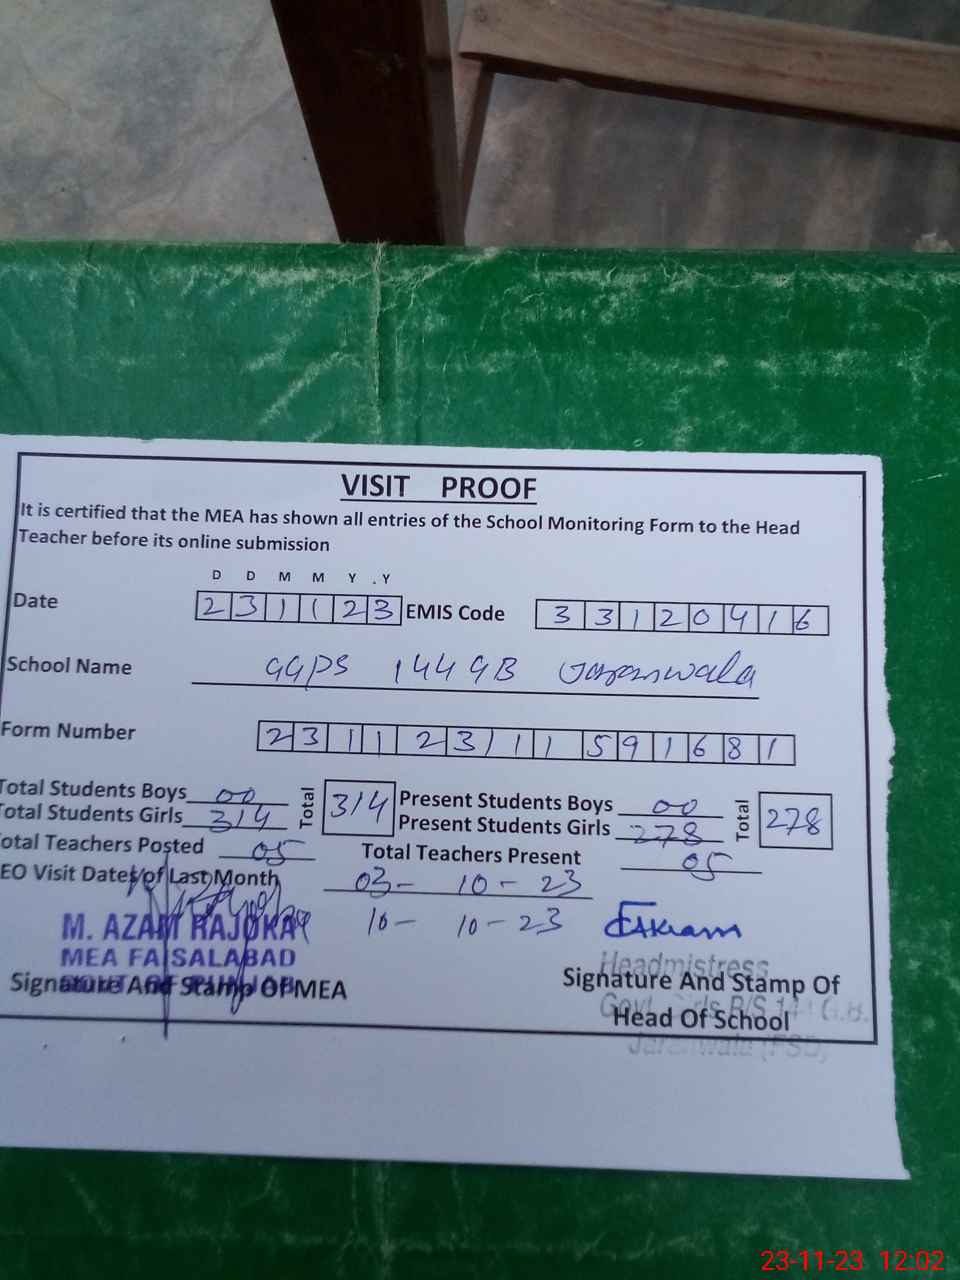 VISIT PROOF
It is certified that the MEA has shown all entries of the School Monitoring Form to the Head
Teacher before its online submission
D D M M Y . Y
Date 2 3 1 1 2 3 EMIS Code 3 3 1 2 0 4 1 6
School Name GGPS 144 GB Jaranwala
Form Number 2 3 1 1 2 3 1 1 1 5 9 1 6 8 1
Total Students Boys 00 Total 314 Present Students Boys 00 Total 278
Total Students Girls 314 Present Students Girls 278
Total Teachers Posted 05 Total Teachers Present 05
EO Visit Dates of Last Month 03 - 10 - 23
10 - 10 - 23
M. AZAM RAJOKA
MEA FAISALABAD
GOVT OF PUNJAB
Signature And Stamp Of MEA
Headmistress
Signature And Stamp Of
Govt. Girls P/S G.B.
Head Of School
Jaranwala (FSD)
23-11-23 12:02